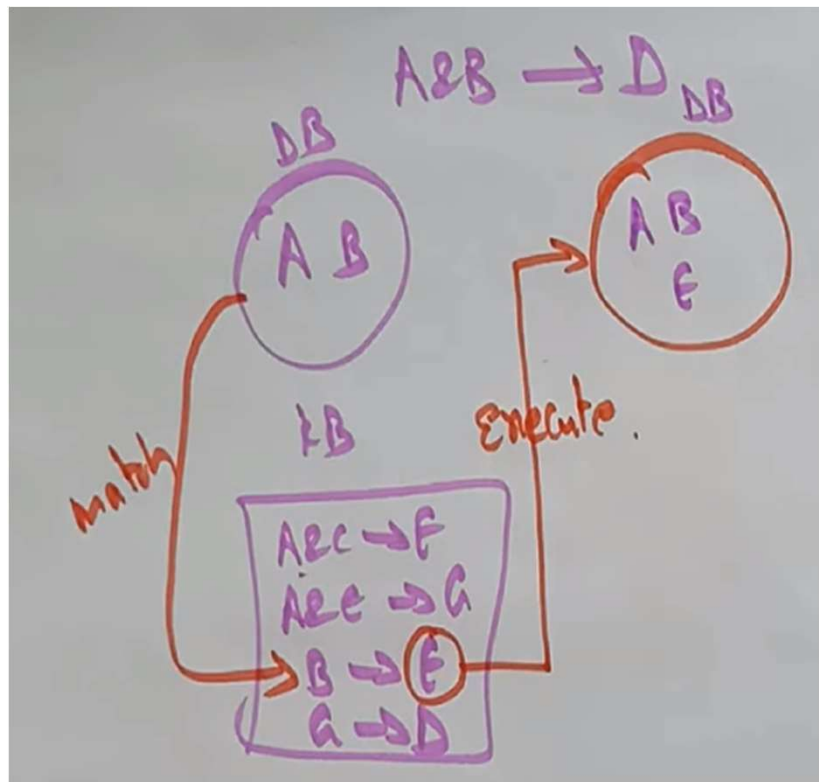 A&B → D
DB
DB
A B
A B
E
KB
match
Execute.
A&C → F
A&E → G
B → E
G → D